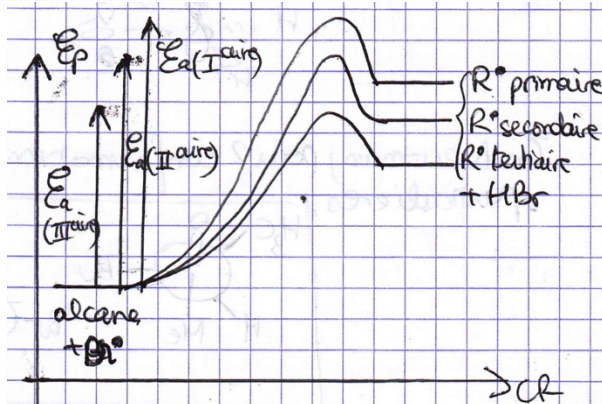 Ep
Ea(Iaire)
Ea(IIaire)
Ea
(IIIaire)
R° primaire
R° secondaire
R° tertiaire
+ HBr
alcane
+ Br°
CR